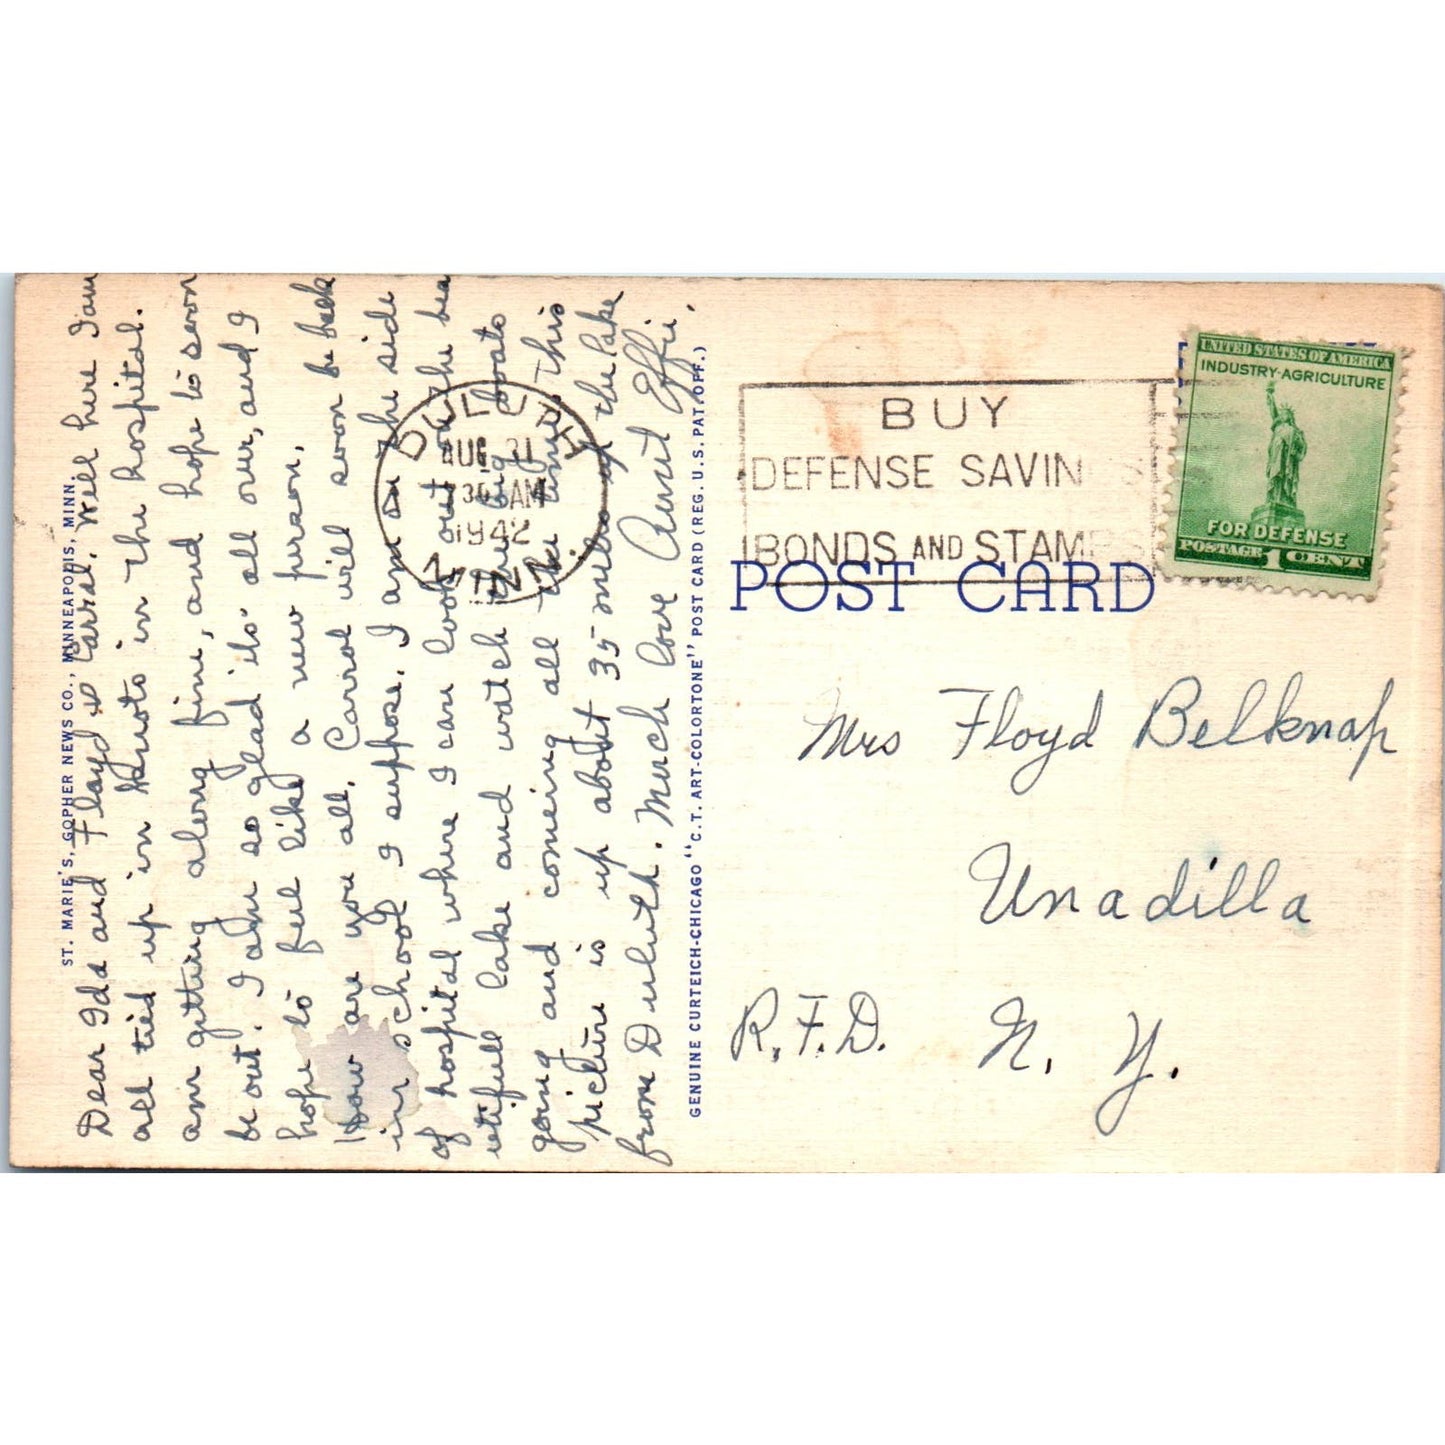 ST. MARIE'S, GOPHER NEWS CO., MINNEAPOLIS, MINN.
Dear Ida and Floyd & Carral. Well here I am
all tied up in knots in the hospital.
am getting along fine, and hope to soon
be out. I am so glad its' all over, and I
hope to feel like a new person.
How are you all. Carrol will soon be back
in school I suppose. I am on the side
of hospital where I can look out on the bea
utifull lake and watch the big boats
going and comeing all the time. this
picture is up about 35 miles up the lake
from Duluth. Much love Aunt Effie.
GENUINE CURTEICH-CHICAGO "C.T. ART-COLORTONE" POST CARD (REG. U.S. PAT. OFF.)
DULUTH
AUG 31
30 AM
1942
MINN.
BUY
DEFENSE SAVINGS
BONDS AND STAMPS
UNITED STATES OF AMERICA
INDUSTRY·AGRICULTURE
FOR DEFENSE
POSTAGE 1 CENT
POST CARD
Mrs Floyd Belknap
Unadilla
R.F.D. N. Y.